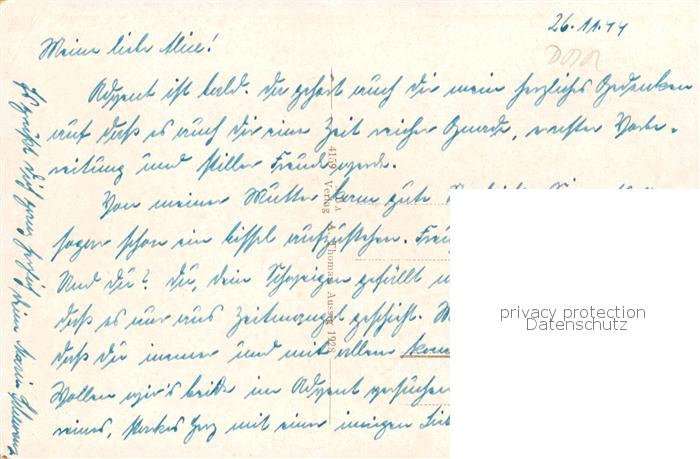 26.11.44
Meine liebe Alice!
Advent ist bald. Da gehört auch dir mein herzliches Gedenken
auf daß es auch dir eine Zeit reicher Gnade, ernster Vorbe-
reitung und stiller Freude werde.
Von meiner Mutter kam gute
sogar schon ein bissel aufzustehen.
Und du? Du, dein Schweigen gefällt
daß es nur aus Zeitmangel geschieht.
daß du immer und mit allem
Wollen wir's beide im Advent versuchen
reines, starkes Herz mit einer innigen
Es grüßt dich ganz herzlich
deine Maria
4159 Verlag A. Thomas, Aussig 1928
privacy protection
Datenschutz